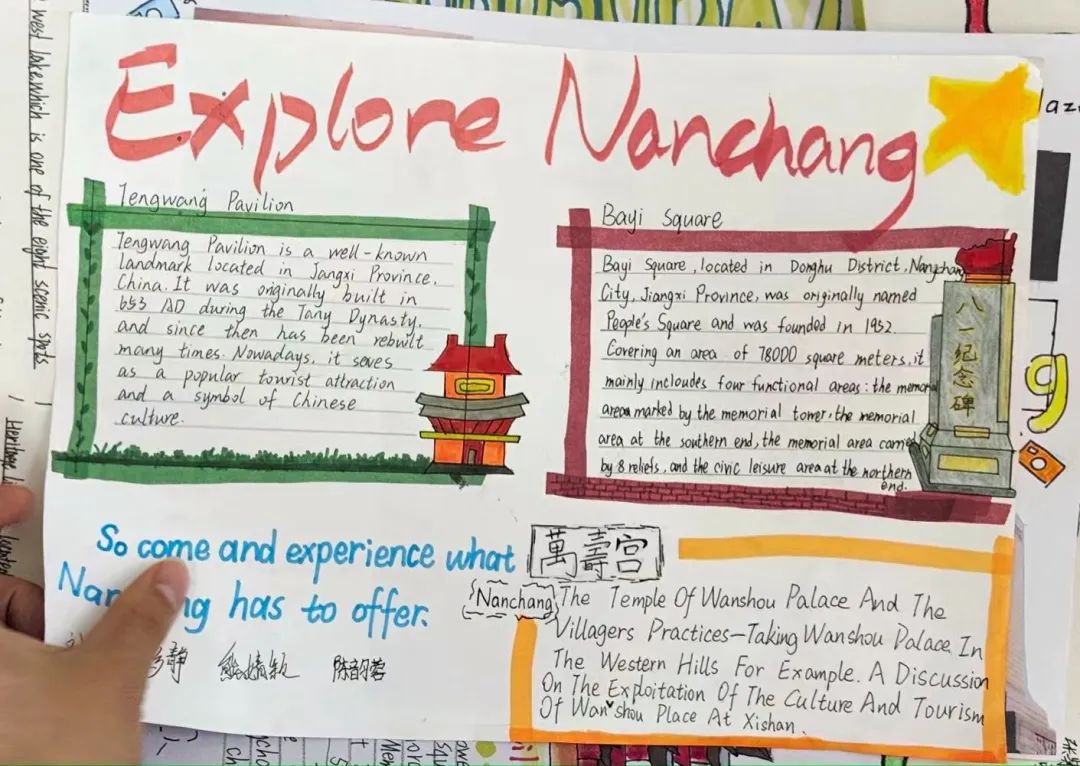 Explore Nanchang
Tengwang Pavilion
Tengwang Pavilion is a well-known
landmark located in Jangxi Province,
China. It was originally built in
653 AD during the Tang Dynasty,
and since then has been rebuilt
many times. Nowadays, it seves
as a popular tourist attraction
and a symbol of Chinese
culture.
Bayi Square
Bayi Square, located in Donghu District, Nangchang
City, Jiangxi Province, was originally named
People's Square and was founded in 1952.
Covering an area of 78000 square meters, it
mainly incloudes four functional areas: the memorial
area marked by the memorial tower, the memorial
area at the southern end, the memorial area
by 8 reliefs, and the civic leisure area at the northern
end.
八一纪念碑
So come and experience what
has to offer.
萬壽宫
Nanchang
The Temple Of Wanshou Palace And The
Villagers Practices-Taking Wanshou Palace In
The Western Hills For Example. A Discussion
On The Exploitation Of The Culture And Tourism
Of Wanshou Place At Xishan
静
west lake which is one of the eight scenic spots
Heritage
located
g